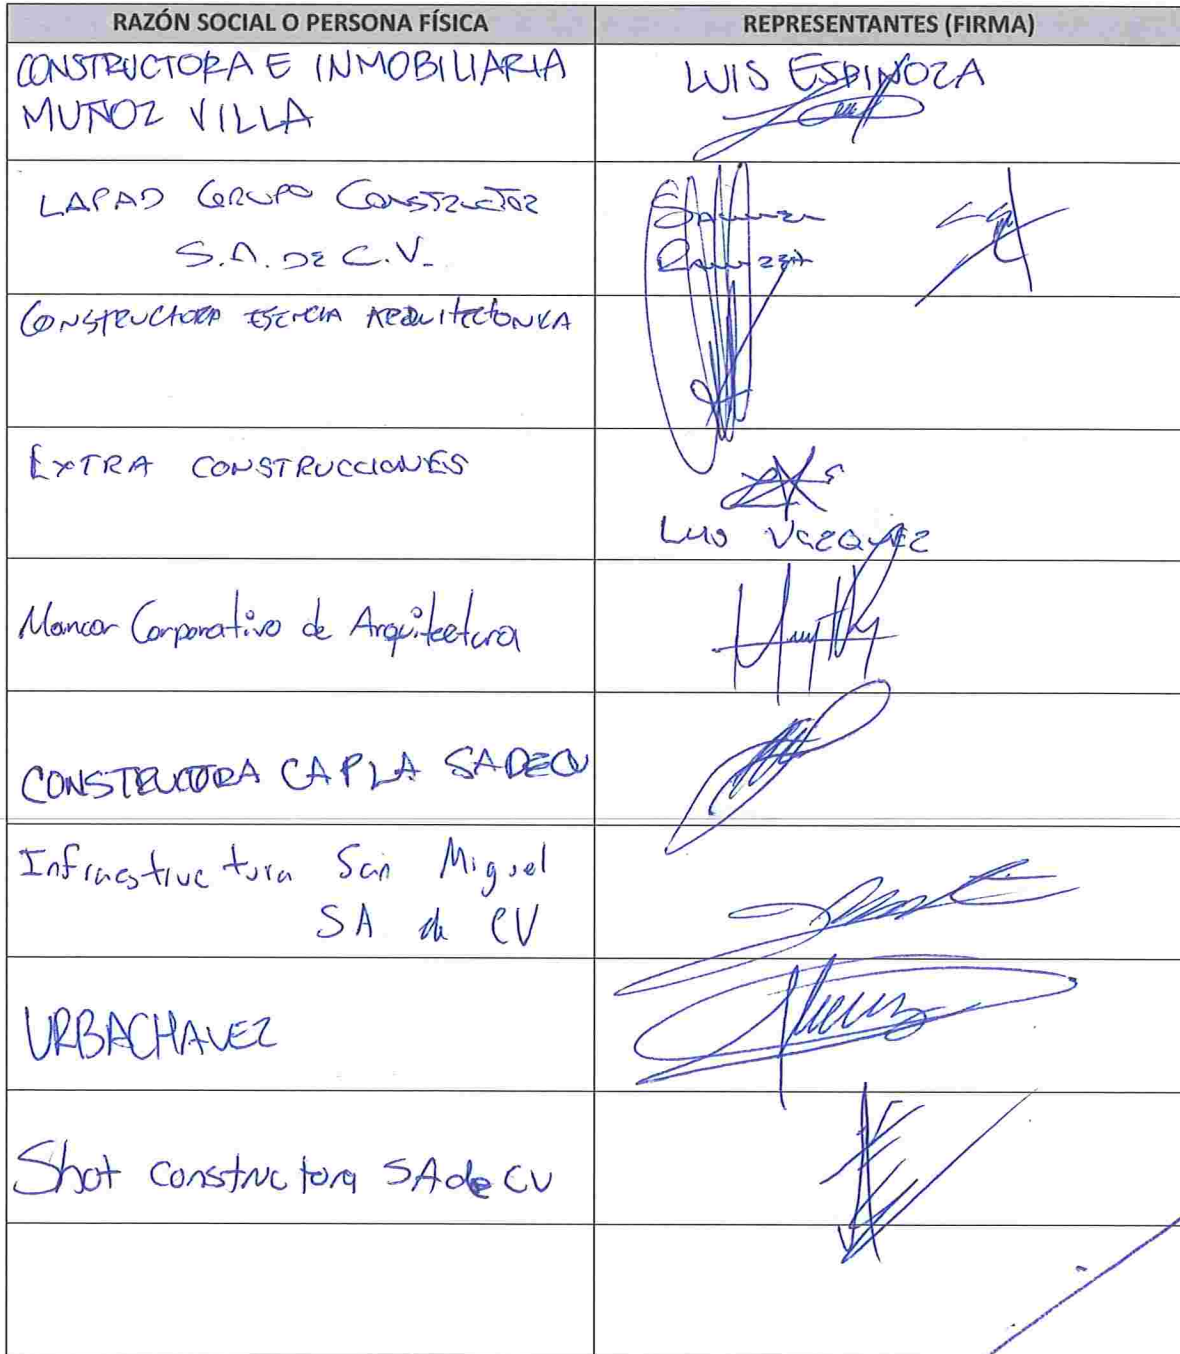 RAZÓN SOCIAL O PERSONA FÍSICA
REPRESENTANTES (FIRMA)
CONSTRUCTORA E INMOBILIARIA
MUÑOZ VILLA
LUIS ESPINOZA
LAPAD GRUPO CONSTRUCTOR
S.A. DE C.V.
CONSTRUCTORA ESENCIA ARQUITECTONICA
EXTRA CONSTRUCCIONES
LUIS VAZQUEZ
Mancor Corporativo de Arquitectura
CONSTRUCTORA CAPLA SADECV
Infraestructura San Miguel
SA de CV
URBACHAVEZ
Shot constructora SA de CV